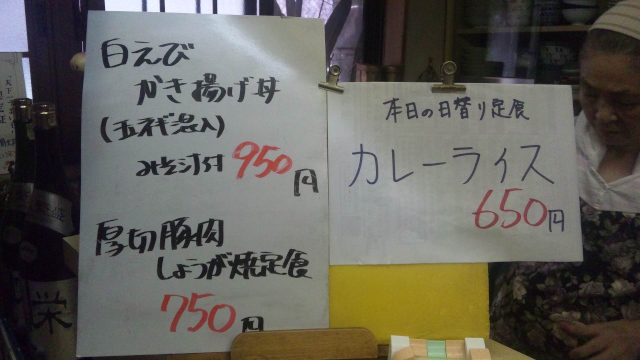 白えび
かき揚げ丼
(玉ネギ混入)
みそ汁付 950円
厚切豚肉
しょうが焼定食
750円
本日の日替り定食
カレーライス
650円
栄